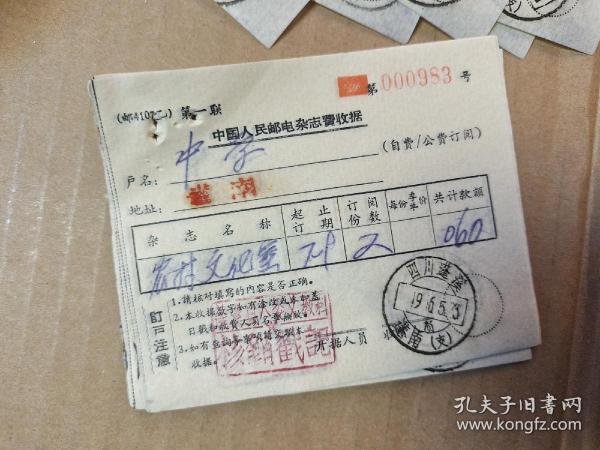 第000983号
(邮4107乙) 第一联
中国人民邮电杂志费收据
户名: 中学 (自费/公费订阅)
地址: 蓬南
杂志名称 起止订期 订阅份数 每份季单价 共计款额
农村文化室 2 060
订户注意
1.请核对填写的内容是否正确。
2.本收据数字如有涂改或未加盖
日戳和收费人员名章无效。
3.如有查询事项请交验本
收据。
开据人员
核销戳记
四川蓬溪
蓬南(支)
孔夫子旧书网
www.kongfz.com